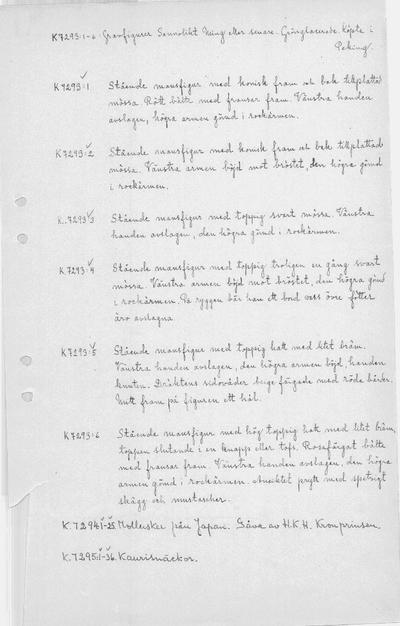 K7293:1-6. Gravfigurer Sannolikt Ming eller senare. Grönglaserade. Köpta i
Peking.
K7293:1 Stående mansfigur med konisk fram och bak tillplattad
mössa. Rött bälte med fransar fram. Vänstra handen
avslagen, högra armen gömd i rockärmen.
K7293:2 Stående mansfigur med konisk fram och bak tillplattad
mössa. Vänstra armen böjd mot bröstet, den högra gömd
i rockärmen.
K.7293:3 Stående mansfigur med toppig svart mössa. Vänstra
handen avslagen, den högra gömd i rockärmen.
K7293:4 Stående mansfigur med toppig troligen en gång svart
mössa. Vänstra armen böjd mot bröstet, den högra gömd
i rockärmen. På ryggen bär han ett bord vars övre fötter
äro avslagna.
K7293:5 Stående mansfigur med toppig hatt med litet bräm.
Vänstra handen avslagen, den högra armen böjd, handen
knuten. Dräktens sidoväder beige färgade med röda bårder.
Mitt fram på figuren ett hål.
K7293:6 Stående mansfigur med hög toppig hatt med litet bräm,
toppen slutande i en knapp eller tofs. Rosafärgat bälte
med fransar fram. Vänstra handen avslagen, den högra
armen gömd i rockärmen. Ansiktet prytt med spetsigt
skägg och mustascher.
K.7294:1-25. Mollusker från Japan. Gåva av H.K.H. Kronprinsen.
K.7295:1-36. Kaurisnäckor.